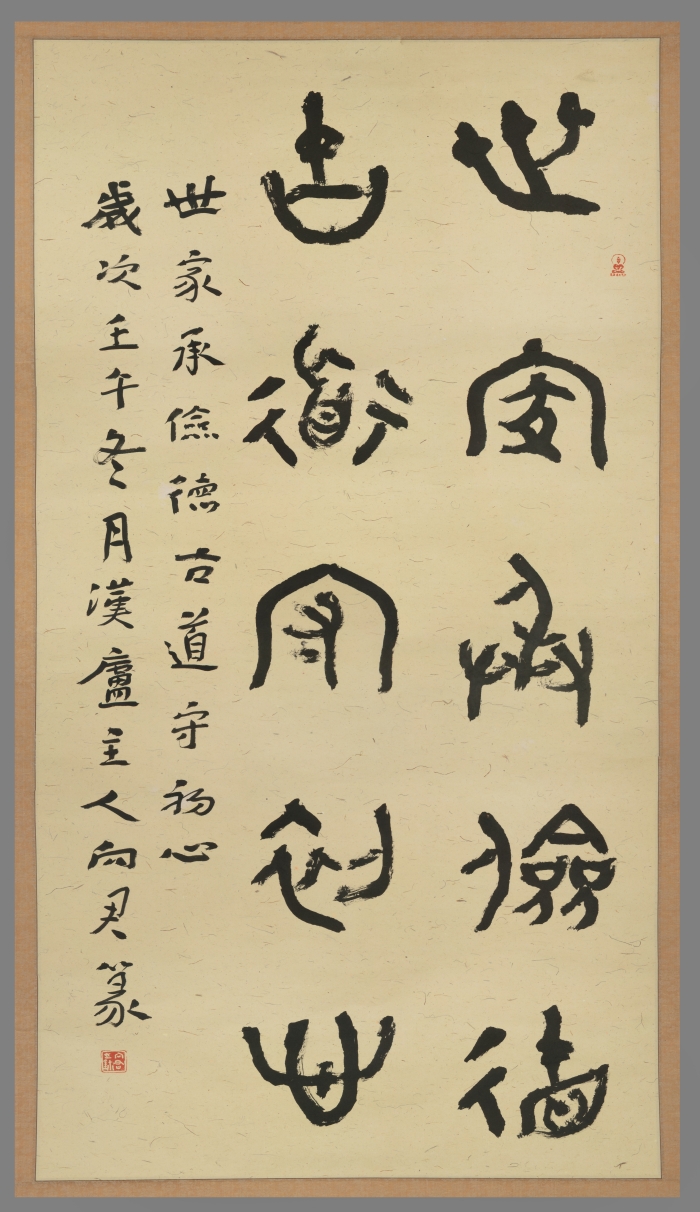 世家承儉德
古道守初心
世家承儉德古道守初心
歲次壬午冬月漢廬主人向君篆